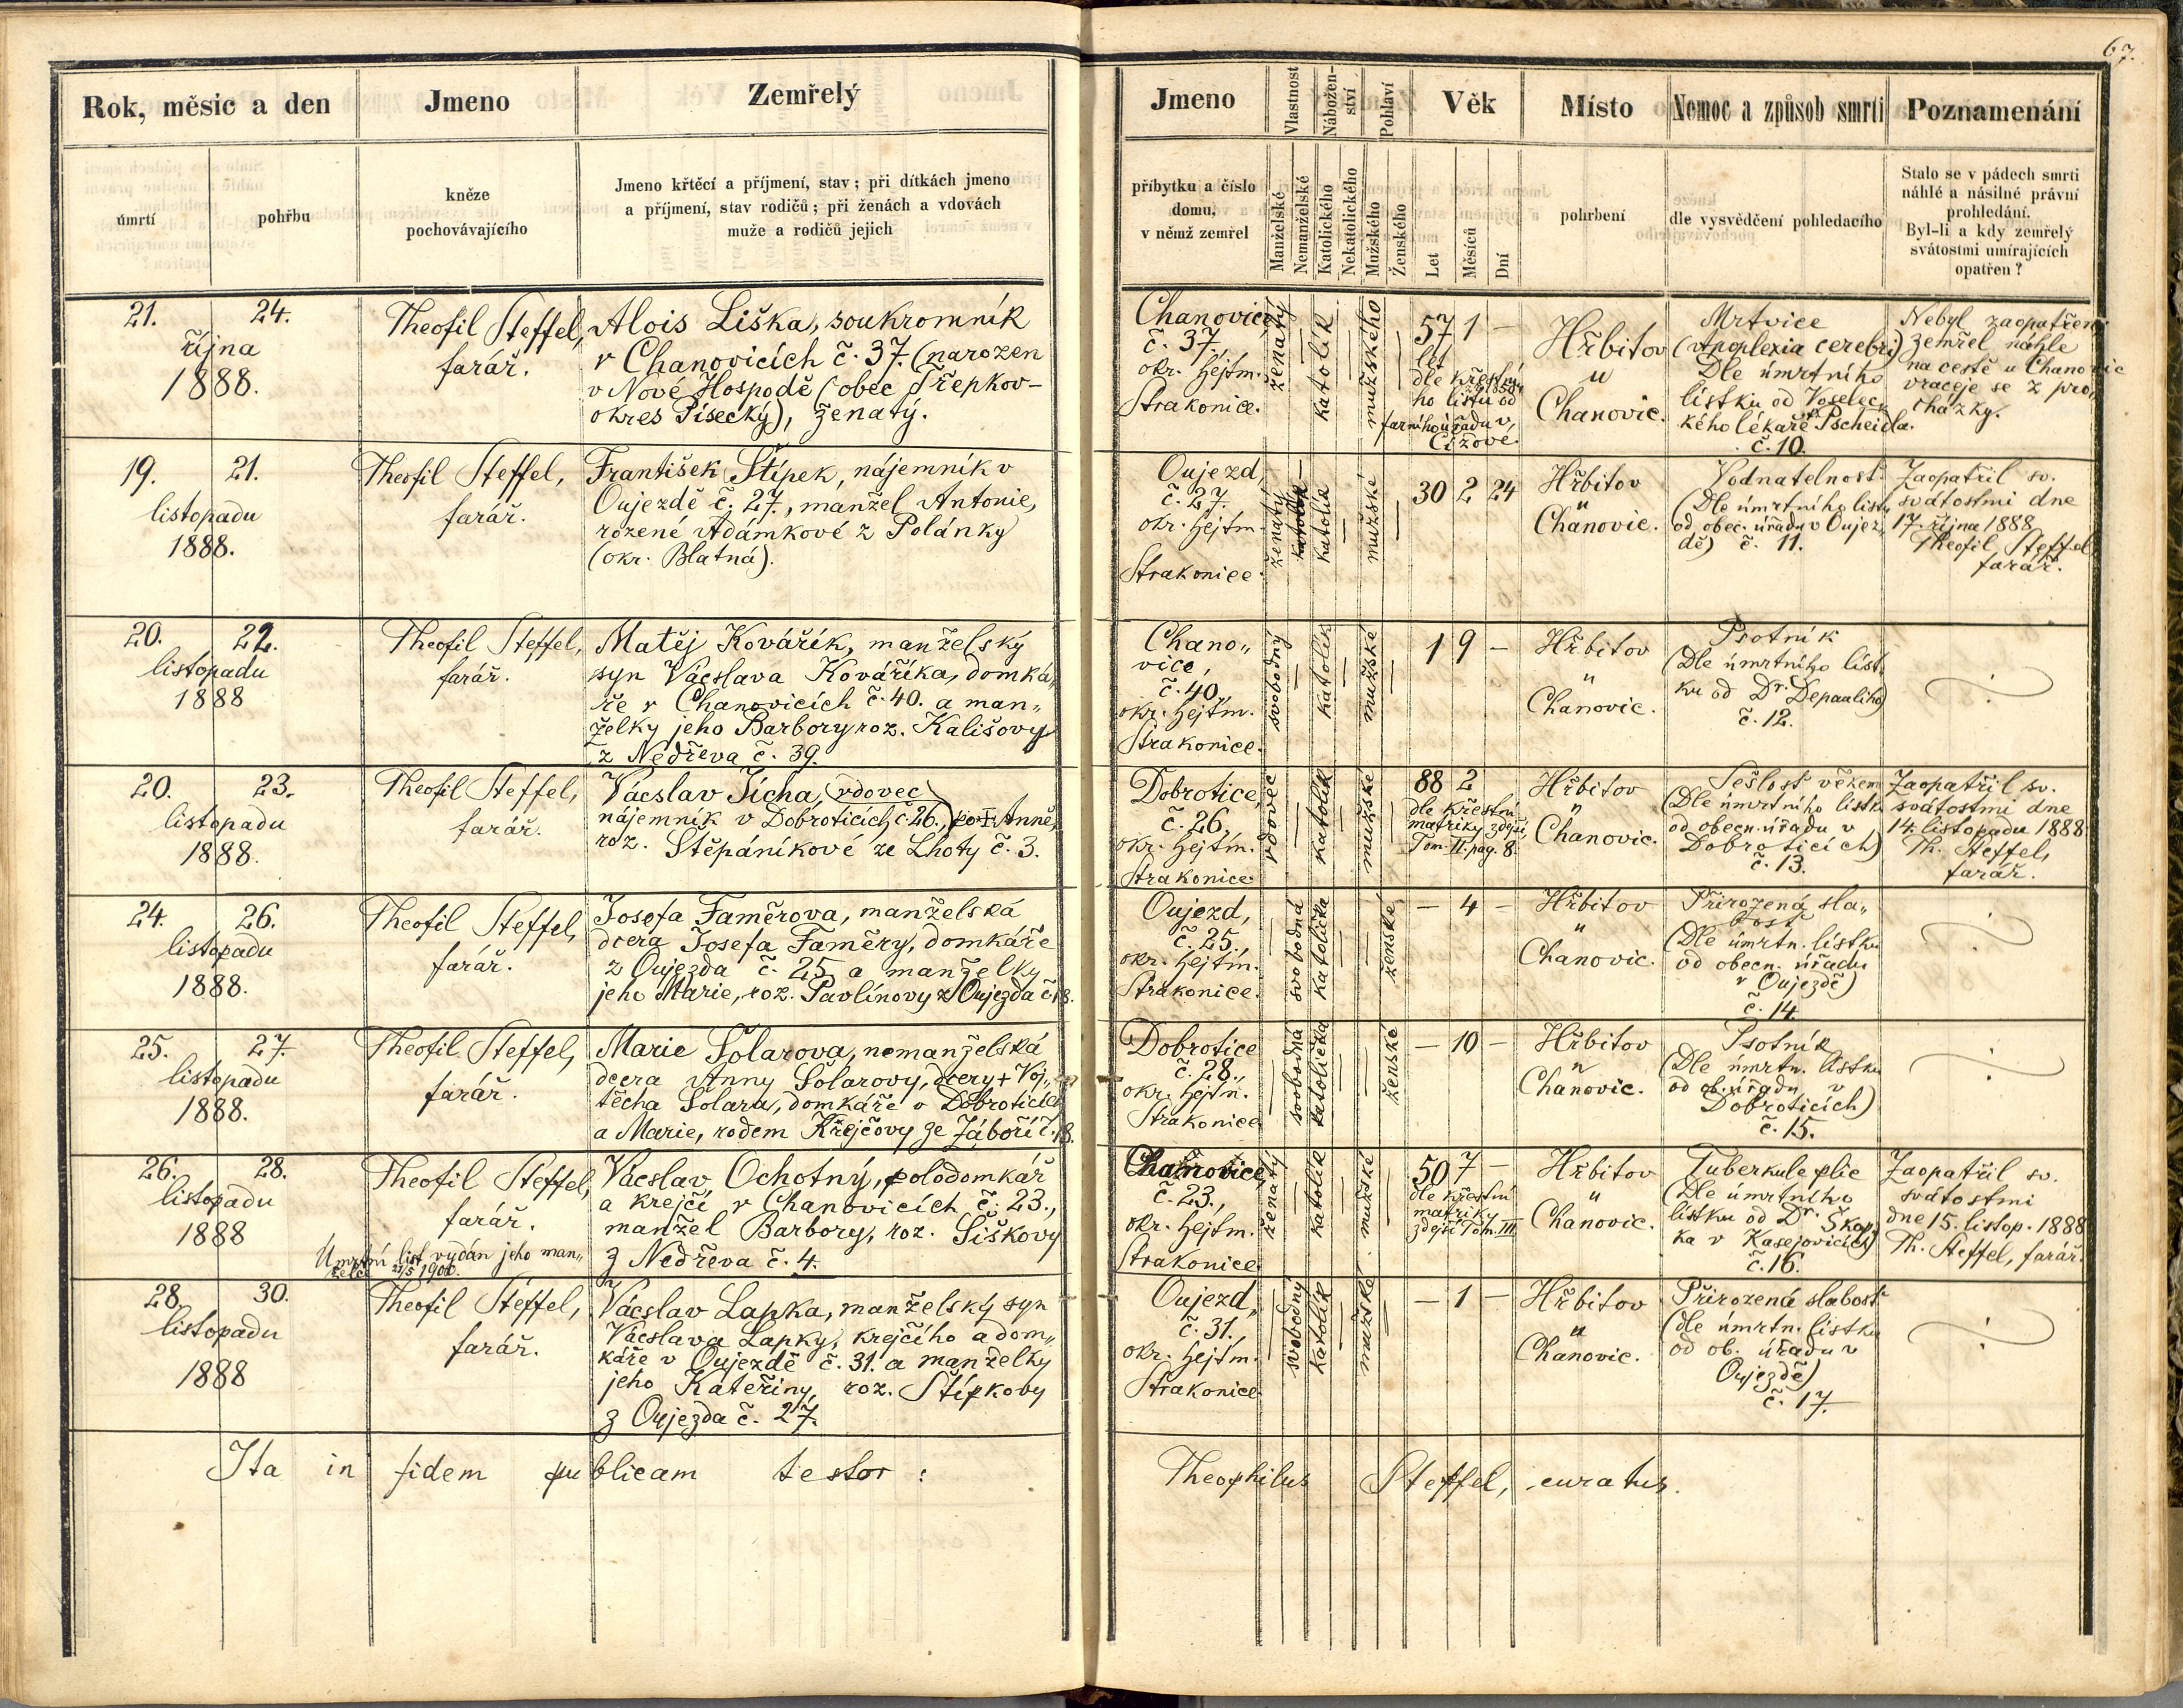 67.
Rok, měsic a den
Jmeno
Zemřelý
Jmeno
Vlastnost
Nábožen-
ství
Pohlaví
Věk
Místo
Nemoc a způsob smrti
Poznamenání
úmrtí
pohřbu
kněze
pochovávajícího
Jmeno křtěcí a příjmení, stav; při dítkách jmeno
a příjmení, stav rodičů; při ženách a vdovách
muže a rodičů jejich
příbytku a číslo
domu,
v němž zemřel
Manželské
Nemanželské
Katolického
Nekatolického
Mužského
Ženského
Let
Měsíců
Dní
pohrbení
dle vysvědčení pohledacího
Stalo se v pádech smrti
náhlé a násilné právní
prohledání.
Byl-li a kdy zemřelý
svátostmi umírajících
opatřen?
21. 24.
října
1888.
Theofil Steffel,
farář.
Alois Liška, soukromník
v Chanovicích č. 37. (narozen
v Nové Hospodě (obec Drepkov-
okres Písecky), ženatý.
Chanovice
č. 37,
okr. Hejtm.
Strakonice.
ženatý
katolík
mužského
57 1 –
let
dle křestní
ho listu od
farního úřadu v
Čížové.
Hřbitov
u
Chanovic.
Mrtvice
(Apoplexia cerebri)
Dle úmrtního
lístku od Voselec
kého lékaře Pscheidla.
č. 10.
Nebyl zaopatřen,
zemřel náhle
na cestě u Chanovic
vraceje se z pro,,
cházky.
19. 21.
listopadu
1888.
Theofil Steffel,
farář.
František Štípek, nájemník v
Oujezdě č. 27., manžel Antonie,
rozené Adámkové z Polánky
(okr. Blatná).
Oujezd,
č. 27.
okr. Hejtm.
Strakonice.
ženatý
katolík
katolík
mužské
30 2 24
Hřbitov
u
Chanovic.
Vodnatelnost
(Dle úmrtního listu
od obec. úřadu v Oujez,,
dě) č. 11.
Zaopatřil sv.
svátostmi dne
17. října 1888
Theofil Steffel,
farář.
20. 22.
listopadu
1888
Theofil Steffel,
farář.
Matěj Kovářík, manželský
syn Vácslava Kováříka, domká,,
ře v Chanovicích č. 40. a man,,
želky jeho Barbory roz. Kališovy
z Nedřeva č. 39.
Chano,,
vice,
č. 40,
okr. Hejtm.
Strakonice.
svobodný
katolík
mužské
1 9 –
Hřbitov
u
Chanovic.
Psotník
(Dle úmrtního líst,,
ku od Dr. Depaaliho)
č. 12.
20. 23.
listopadu
1888.
Theofil Steffel,
farář.
Vácslav Jícha, (vdovec
nájemník v Dobroticích č 26.) po † Anně,
roz. Štěpáníkové ze Lhoty č. 3.
Dobrotice,
č. 26,
okr. Hejtm.
Strakonice
vdovec
katolík
mužské
88 2
dle křestní
matriky zdejší
Tom. II. pag. 8.
Hřbitov
u
Chanovic.
Sešlost věkem
(Dle úmrtního lístku
od obecn. úřadu v
Dobroticích)
č. 13.
Zaopatřil sv.
svátostmi dne
14. listopadu 1888.
Th. Steffel,
farář.
24. 26.
listopadu
1888.
Theofil Steffel,
farář.
Josefa Faměrova, manželská
dcera Josefa Faměry, domkáře
z Oujezda č. 25 a manželky
jeho Marie, roz. Pavlínovy z Oujezda č. 18.
Oujezd,
č. 25.,
okr. Hejtm.
Strakonice.
svobodná
katolička
ženské
– 4 –
Hřbitov
u
Chanovic.
Přirozená sla,,
bost
(Dle úmrtn. lístku
od obecn. úřadu
v Oujezdě)
č. 14.
25. 27.
listopadu
1888.
Theofil Steffel,
farář.
Marie Šolarova, nemanželská
dcera Anny Šolarovy, dcery † Voj,,
těcha Šolara, domkáře v Dobroticích
a Marie, rodem Krejčovy ze Záboří č. 18.
Dobrotice
č. 28.,
okr. Hejtm.
Strakonice
svobodná
katolička
ženské
– 10 –
Hřbitov
u
Chanovic.
Psotník
(Dle úmrtn. lístku
od ob. úřadu v
Dobroticích)
č. 15.
26. 28.
listopadu
1888
Theofil Steffel,
farář.
Úmrtní list vydán jeho man,,
želce
Vácslav Ochotný, polodomkář
a krejčí v Chanovicích č. 23.,
manžel Barbory, roz. Šiškovy
z Nedřeva č. 4.
Chanovice,
č. 23.,
okr. Hejtm.
Strakonice.
ženatý
katolík
mužské
50 7 –
dle křestní
matriky
zdejší Tom. III
Hřbitov
u
Chanovic.
Tuberkule plic
(Dle úmrtního
lístku od Dr. Škop,,
ka v Kasejovicích)
č. 16.
Zaopatřil sv.
svátostmi
dne 15. listop. 1888
Th. Steffel, farář.
28. 30.
listopadu
1888
Theofil Steffel,
farář.
Vácslav Lapka, manželský syn
Vácslava Lapky, krejčího a dom,,
káře v Oujezdě č. 31. a manželky
jeho Kateřiny, roz. Štípkovy
z Oujezda č. 27.
Oujezd,
č. 31.,
okr. Hejtm.
Strakonice.
svobodný
katolík
mužské
– 1 –
Hřbitov
u
Chanovic.
Přirozená slabost
(dle úmrtn. lístku
od ob. úřadu v
Oujezdě)
č. 17.
Ita in fidem publicam testor: Theophilus Steffel, curatus.